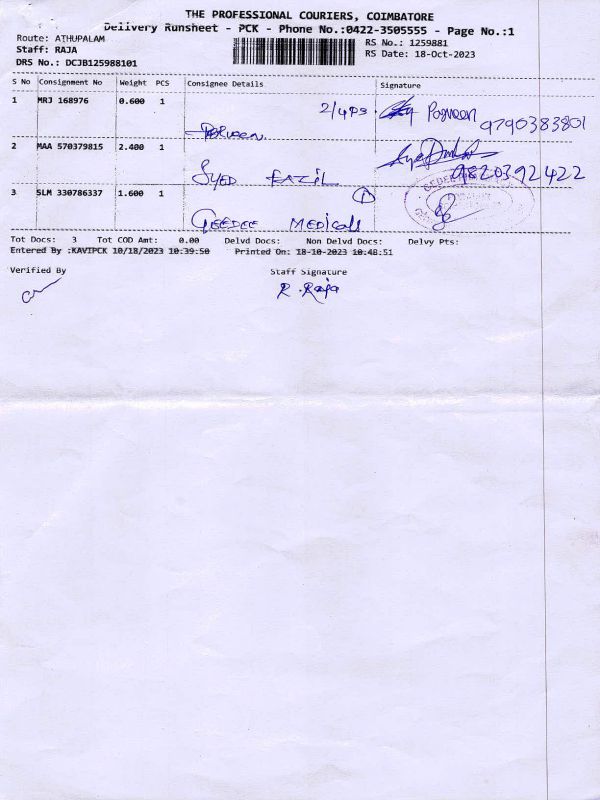 THE PROFESSIONAL COURIERS, COIMBATORE
Delivery Runsheet - PCK - Phone No.:0422-3505555 - Page No.:1
Route: ATHUPALAM
RS No.: 1259881
Staff: RAJA
RS Date: 18-Oct-2023
DRS No.: DCJB125988101
S No Consignment No Weight PCS Consignee Details Signature
1 MRJ 168976 0.600 1
Parveen
9790383801
2 MAA 570379815 2.400 1
SYED FAZIL
9820392422
3 SLM 330786337 1.600 1
GEEDEE MEDICALS
Tot Docs: 3 Tot COD Amt: 0.00 Delvd Docs: Non Delvd Docs: Delvy Pts:
Entered By :KAVIPCK 10/18/2023 10:39:50 Printed On: 18-10-2023 10:48:51
Verified By Staff Signature
R. Raja